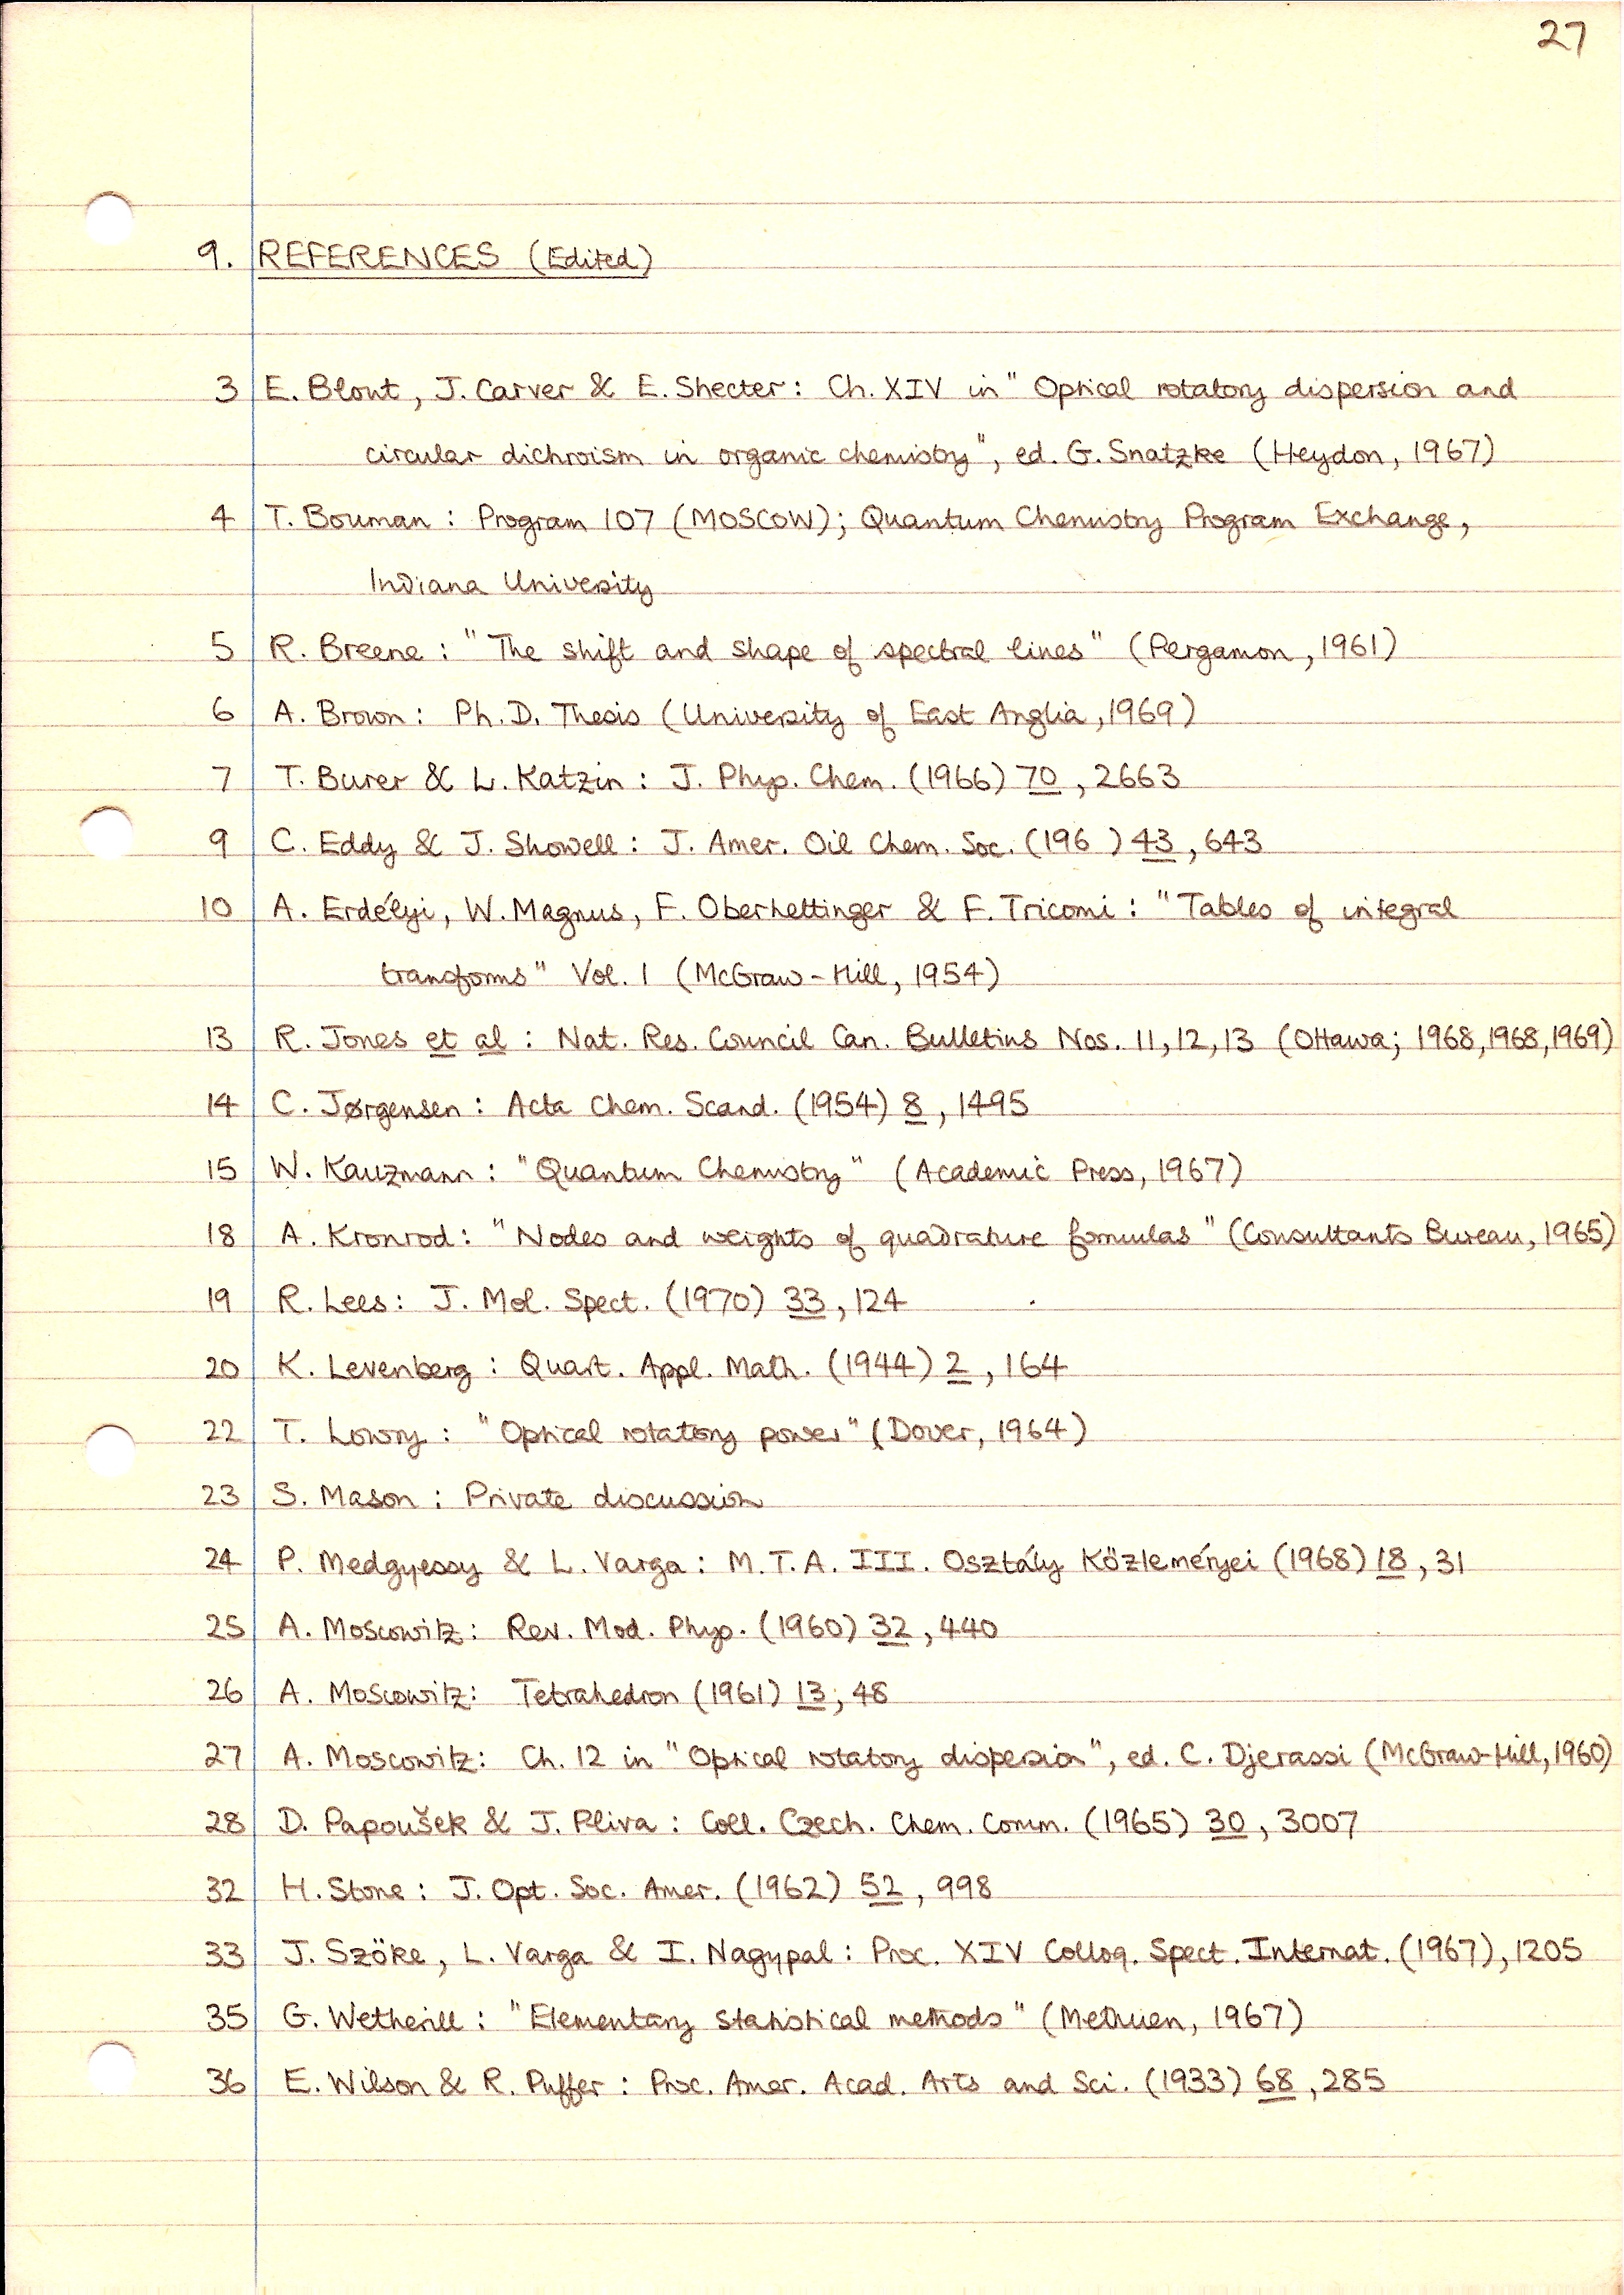 27
9. REFERENCES (Edited)
3 E. Blout, J. Carver & E. Shecter: Ch. XIV in "Optical rotatory dispersion and
circular dichroism in organic chemistry", ed. G. Snatzke (Heydon, 1967)
4 T. Bouman: Program 107 (MOSCOW); Quantum Chemistry Program Exchange,
Indiana University
5 R. Breene: "The shift and shape of spectral lines" (Pergamon, 1961)
6 A. Brown: Ph.D. Thesis (University of East Anglia, 1969)
7 T. Burer & L. Katzin: J. Phys. Chem. (1966) 70, 2663
9 C. Eddy & J. Showell: J. Amer. Oil Chem. Soc. (196 ) 43, 643
10 A. Erdélyi, W. Magnus, F. Oberhettinger & F. Tricomi: "Tables of integral
transforms" Vol. 1 (McGraw-Hill, 1954)
13 R. Jones et al: Nat. Res. Council Can. Bulletins Nos. 11, 12, 13 (Ottawa; 1968, 1968, 1969)
14 C. Jørgensen: Acta Chem. Scand. (1954) 8, 1495
15 W. Kauzmann: "Quantum Chemistry" (Academic Press, 1967)
18 A. Kronrod: "Nodes and weights of quadrature formulas" (Consultants Bureau, 1965)
19 R. Lees: J. Mol. Spect. (1970) 33, 124
20 K. Levenberg: Quart. Appl. Math. (1944) 2, 164
22 T. Lowry: "Optical rotatory power" (Dover, 1964)
23 S. Mason: Private discussion
24 P. Medgyessy & L. Varga: M.T.A. III. Osztály Közleményei (1968) 18, 31
25 A. Moscowitz: Rev. Mod. Phys. (1960) 32, 440
26 A. Moscowitz: Tetrahedron (1961) 13, 48
27 A. Moscowitz: Ch. 12 in "Optical rotatory dispersion", ed. C. Djerassi (McGraw-Hill, 1960)
28 D. Papoušek & J. Pliva: Coll. Czech. Chem. Comm. (1965) 30, 3007
32 H. Stone: J. Opt. Soc. Amer. (1962) 52, 998
33 J. Szöke, L. Varga & I. Nagypal: Proc. XIV Colloq. Spect. Internat. (1967), 1205
35 G. Wetherill: "Elementary statistical methods" (Methuen, 1967)
36 E. Wilson & R. Puffer: Proc. Amer. Acad. Arts and Sci. (1933) 68, 285